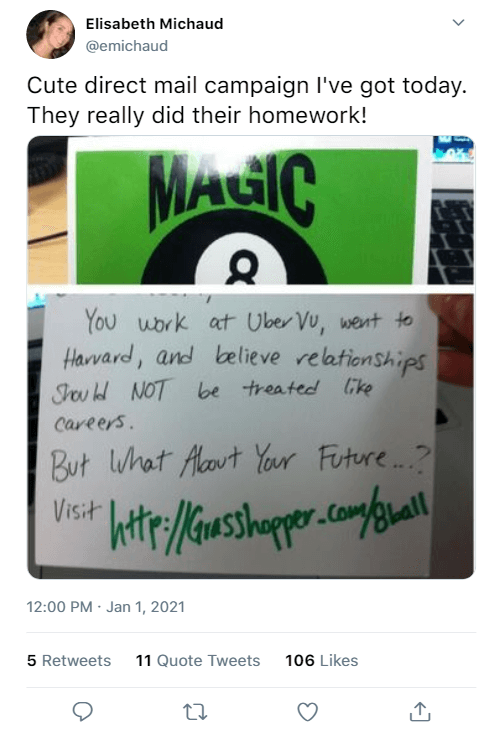 Elisabeth Michaud
@emichaud
Cute direct mail campaign I've got today.
They really did their homework!
MAGIC
8
You work at UberVU, went to
Harvard, and believe relationships
Should NOT be treated like
careers.
But What About Your Future...?
Visit http://Grasshopper.com/8ball
12:00 PM · Jan 1, 2021
5 Retweets 11 Quote Tweets 106 Likes